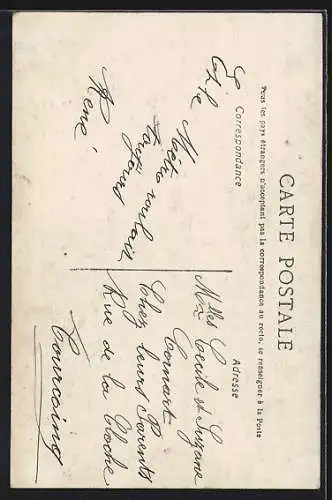 CARTE POSTALE
Tous les pays étrangers n'acceptant pas la correspondance au recto, se renseigner à la Poste
Correspondance
Adresse
toujours
René
Mlles Cécile et Suzanne
Chez leurs Parents
Rue de la Cloche
Tourcoing